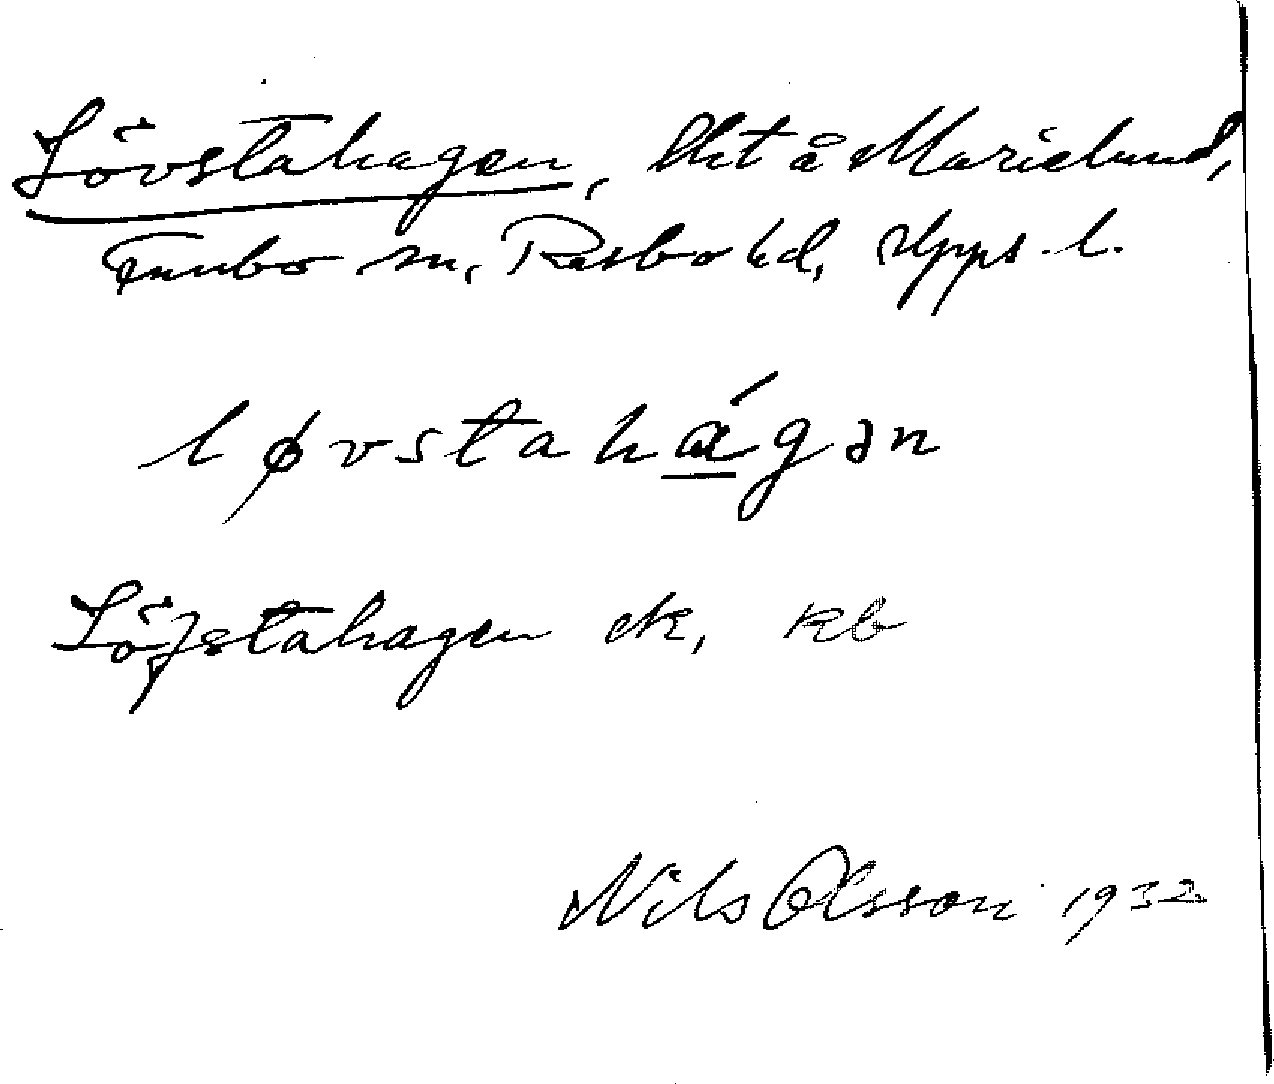 Lövstahagen, lht å Marielund,
Funbo sn, Rasbo hd, Upps. l.
løvstahágən
Löfstahagen ek, kb
Nils Olsson 1932